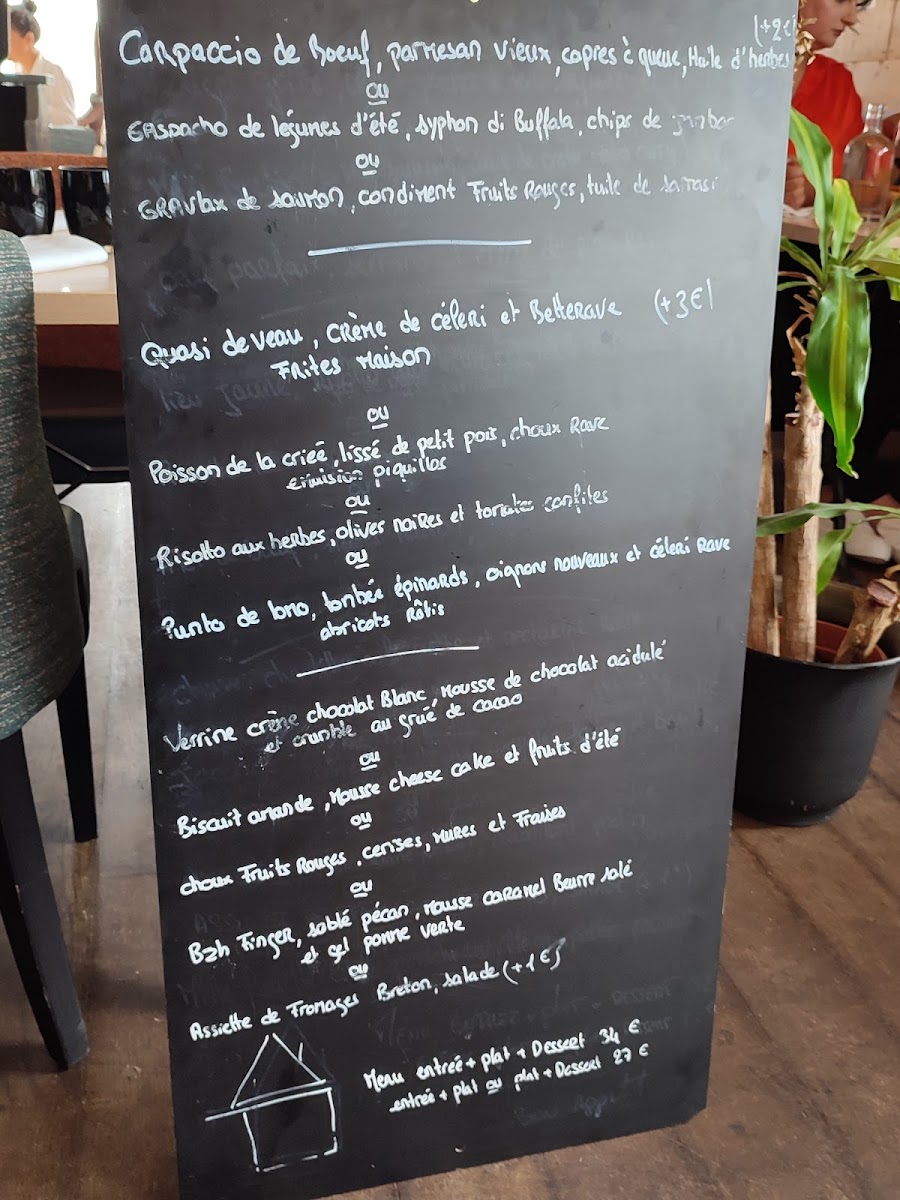 (+2€)
Carpaccio de Boeuf, parmesan vieux, capres à queue, Huile d'herbes
ou
Gaspacho de légumes d'été, syphon di Buffala, chips de jambon
ou
Gravlax de saumon, condiment Fruits Rouges, tuile de sarrasi
Quasi de veau, crème de céleri et Betterave (+3€)
Frites Maison
ou
Poisson de la crieé, lissé de petit pois, choux Rave
émulsion piquillos
ou
Risotto aux herbes, olives noires et tomates confites
ou
Punto de lomo, tombée épinards, oignons nouveaux et céleri Rave
abricots Rôtis
Verrine crème chocolat Blanc, Mousse de chocolat acidulé
et crumble au grué de cacao
ou
Biscuit amande, Mousse cheese cake et fruits d'été
ou
choux Fruits Rouges, cerises, Mures et Fraises
ou
Bzh Finger, sablé pécan, mousse caramel Beurre salé
et gel pomme verte
ou
Assiette de Fromages Breton, salade (+1€)
Menu entreé + plat + Dessert 34 €
entreé + plat ou plat + Dessert 27 €